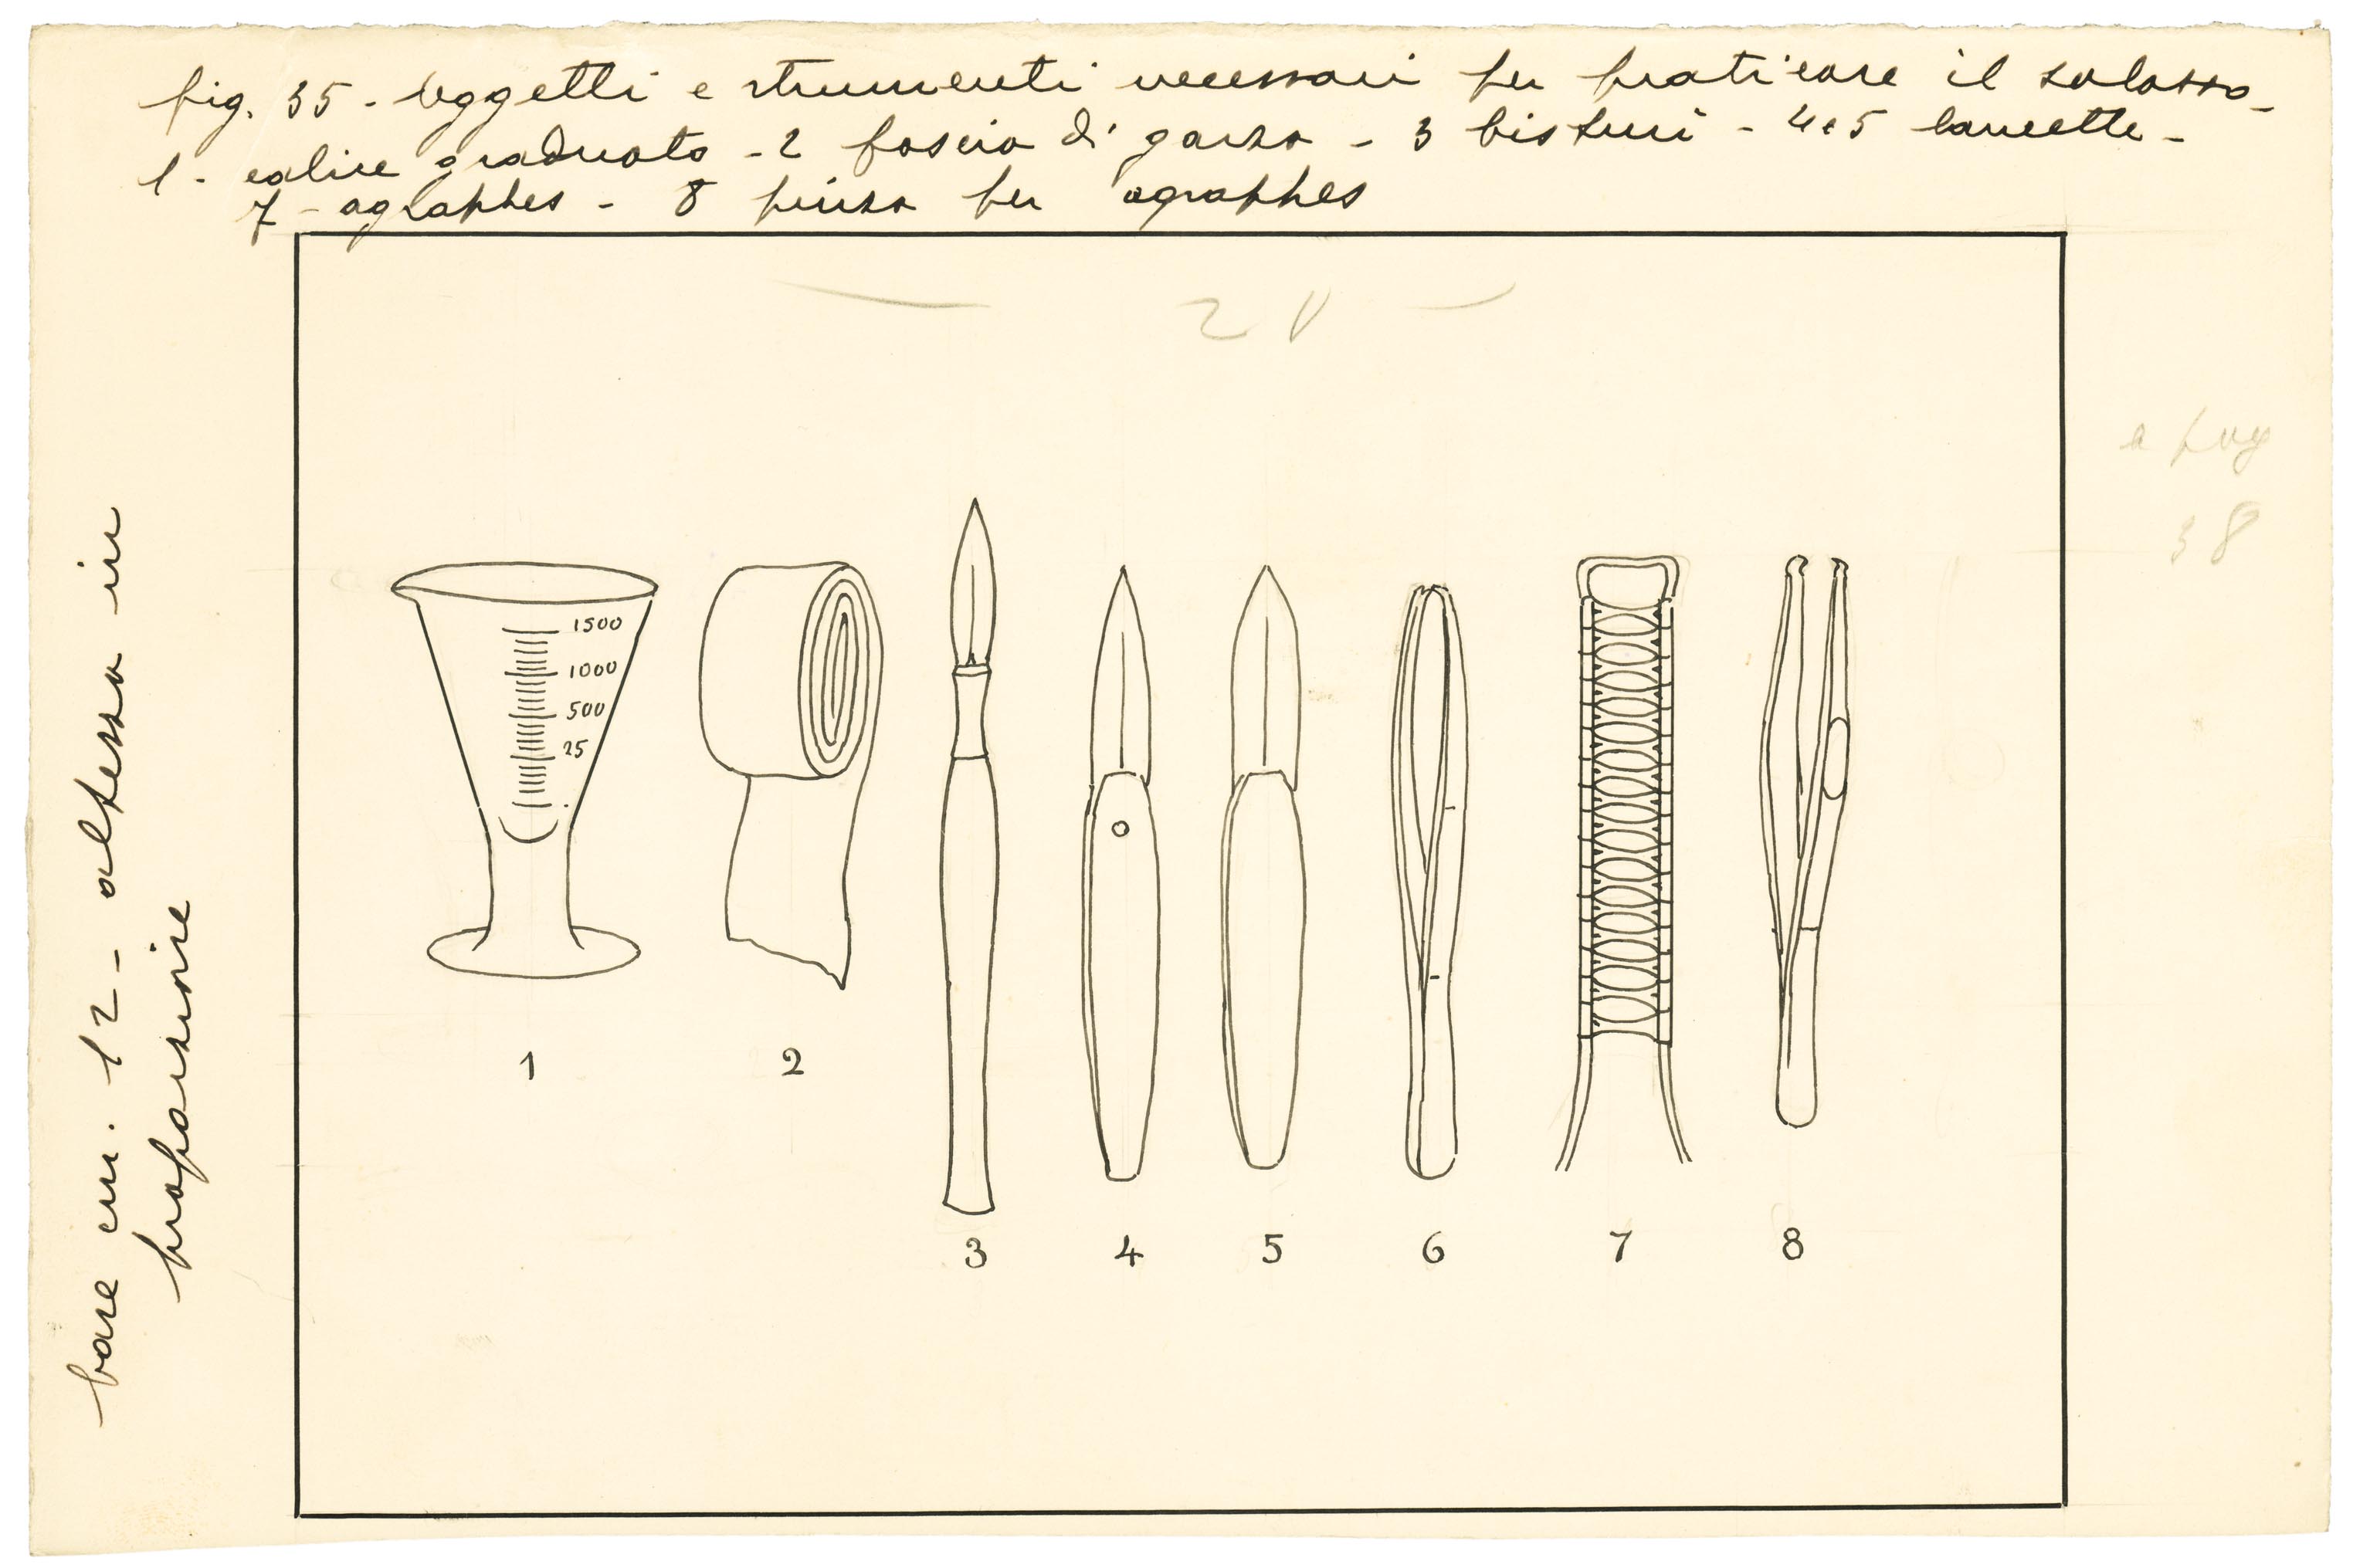 fig. 35 - Oggetti e strumenti necessari per praticare il salasso -
1 - calice graduato - 2 fascia di garza - 3 bisturi - 4 e 5 lancette -
7 - agraphes - 8 pinza per agraphes
base cm. 12 - altezza in
proporzione
20
a pag
38
1500
1000
500
25
1
2
3
4
5
6
7
8